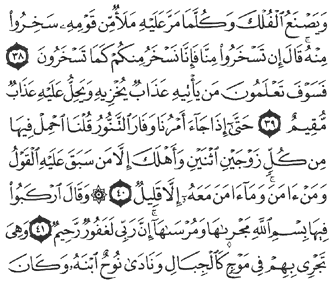 وَيَصْنَعُ ٱلْفُلْكَ وَكُلَّمَا مَرَّ عَلَيْهِ مَلَأٌ مِّن قَوْمِهِۦ سَخِرُوا۟
مِنْهُ ۚ قَالَ إِن تَسْخَرُوا۟ مِنَّا فَإِنَّا نَسْخَرُ مِنكُمْ كَمَا تَسْخَرُونَ ٣٨
فَسَوْفَ تَعْلَمُونَ مَن يَأْتِيهِ عَذَابٌ يُخْزِيهِ وَيَحِلُّ عَلَيْهِ عَذَابٌ
مُّقِيمٌ ٣٩ حَتَّىٰٓ إِذَا جَآءَ أَمْرُنَا وَفَارَ ٱلتَّنُّورُ قُلْنَا ٱحْمِلْ فِيهَا
مِن كُلٍّ زَوْجَيْنِ ٱثْنَيْنِ وَأَهْلَكَ إِلَّا مَن سَبَقَ عَلَيْهِ ٱلْقَوْلُ
وَمَنْ ءَامَنَ ۚ وَمَآ ءَامَنَ مَعَهُۥٓ إِلَّا قَلِيلٌ ٤٠ ۞ وَقَالَ ٱرْكَبُوا۟
فِيهَا بِسْمِ ٱللَّهِ مَجْر۪ىٰهَا وَمُرْسَىٰهَآ ۚ إِنَّ رَبِّى لَغَفُورٌ رَّحِيمٌ ٤١ وَهِىَ
تَجْرِى بِهِمْ فِى مَوْجٍ كَٱلْجِبَالِ وَنَادَىٰ نُوحٌ ٱبْنَهُۥ وَكَانَ